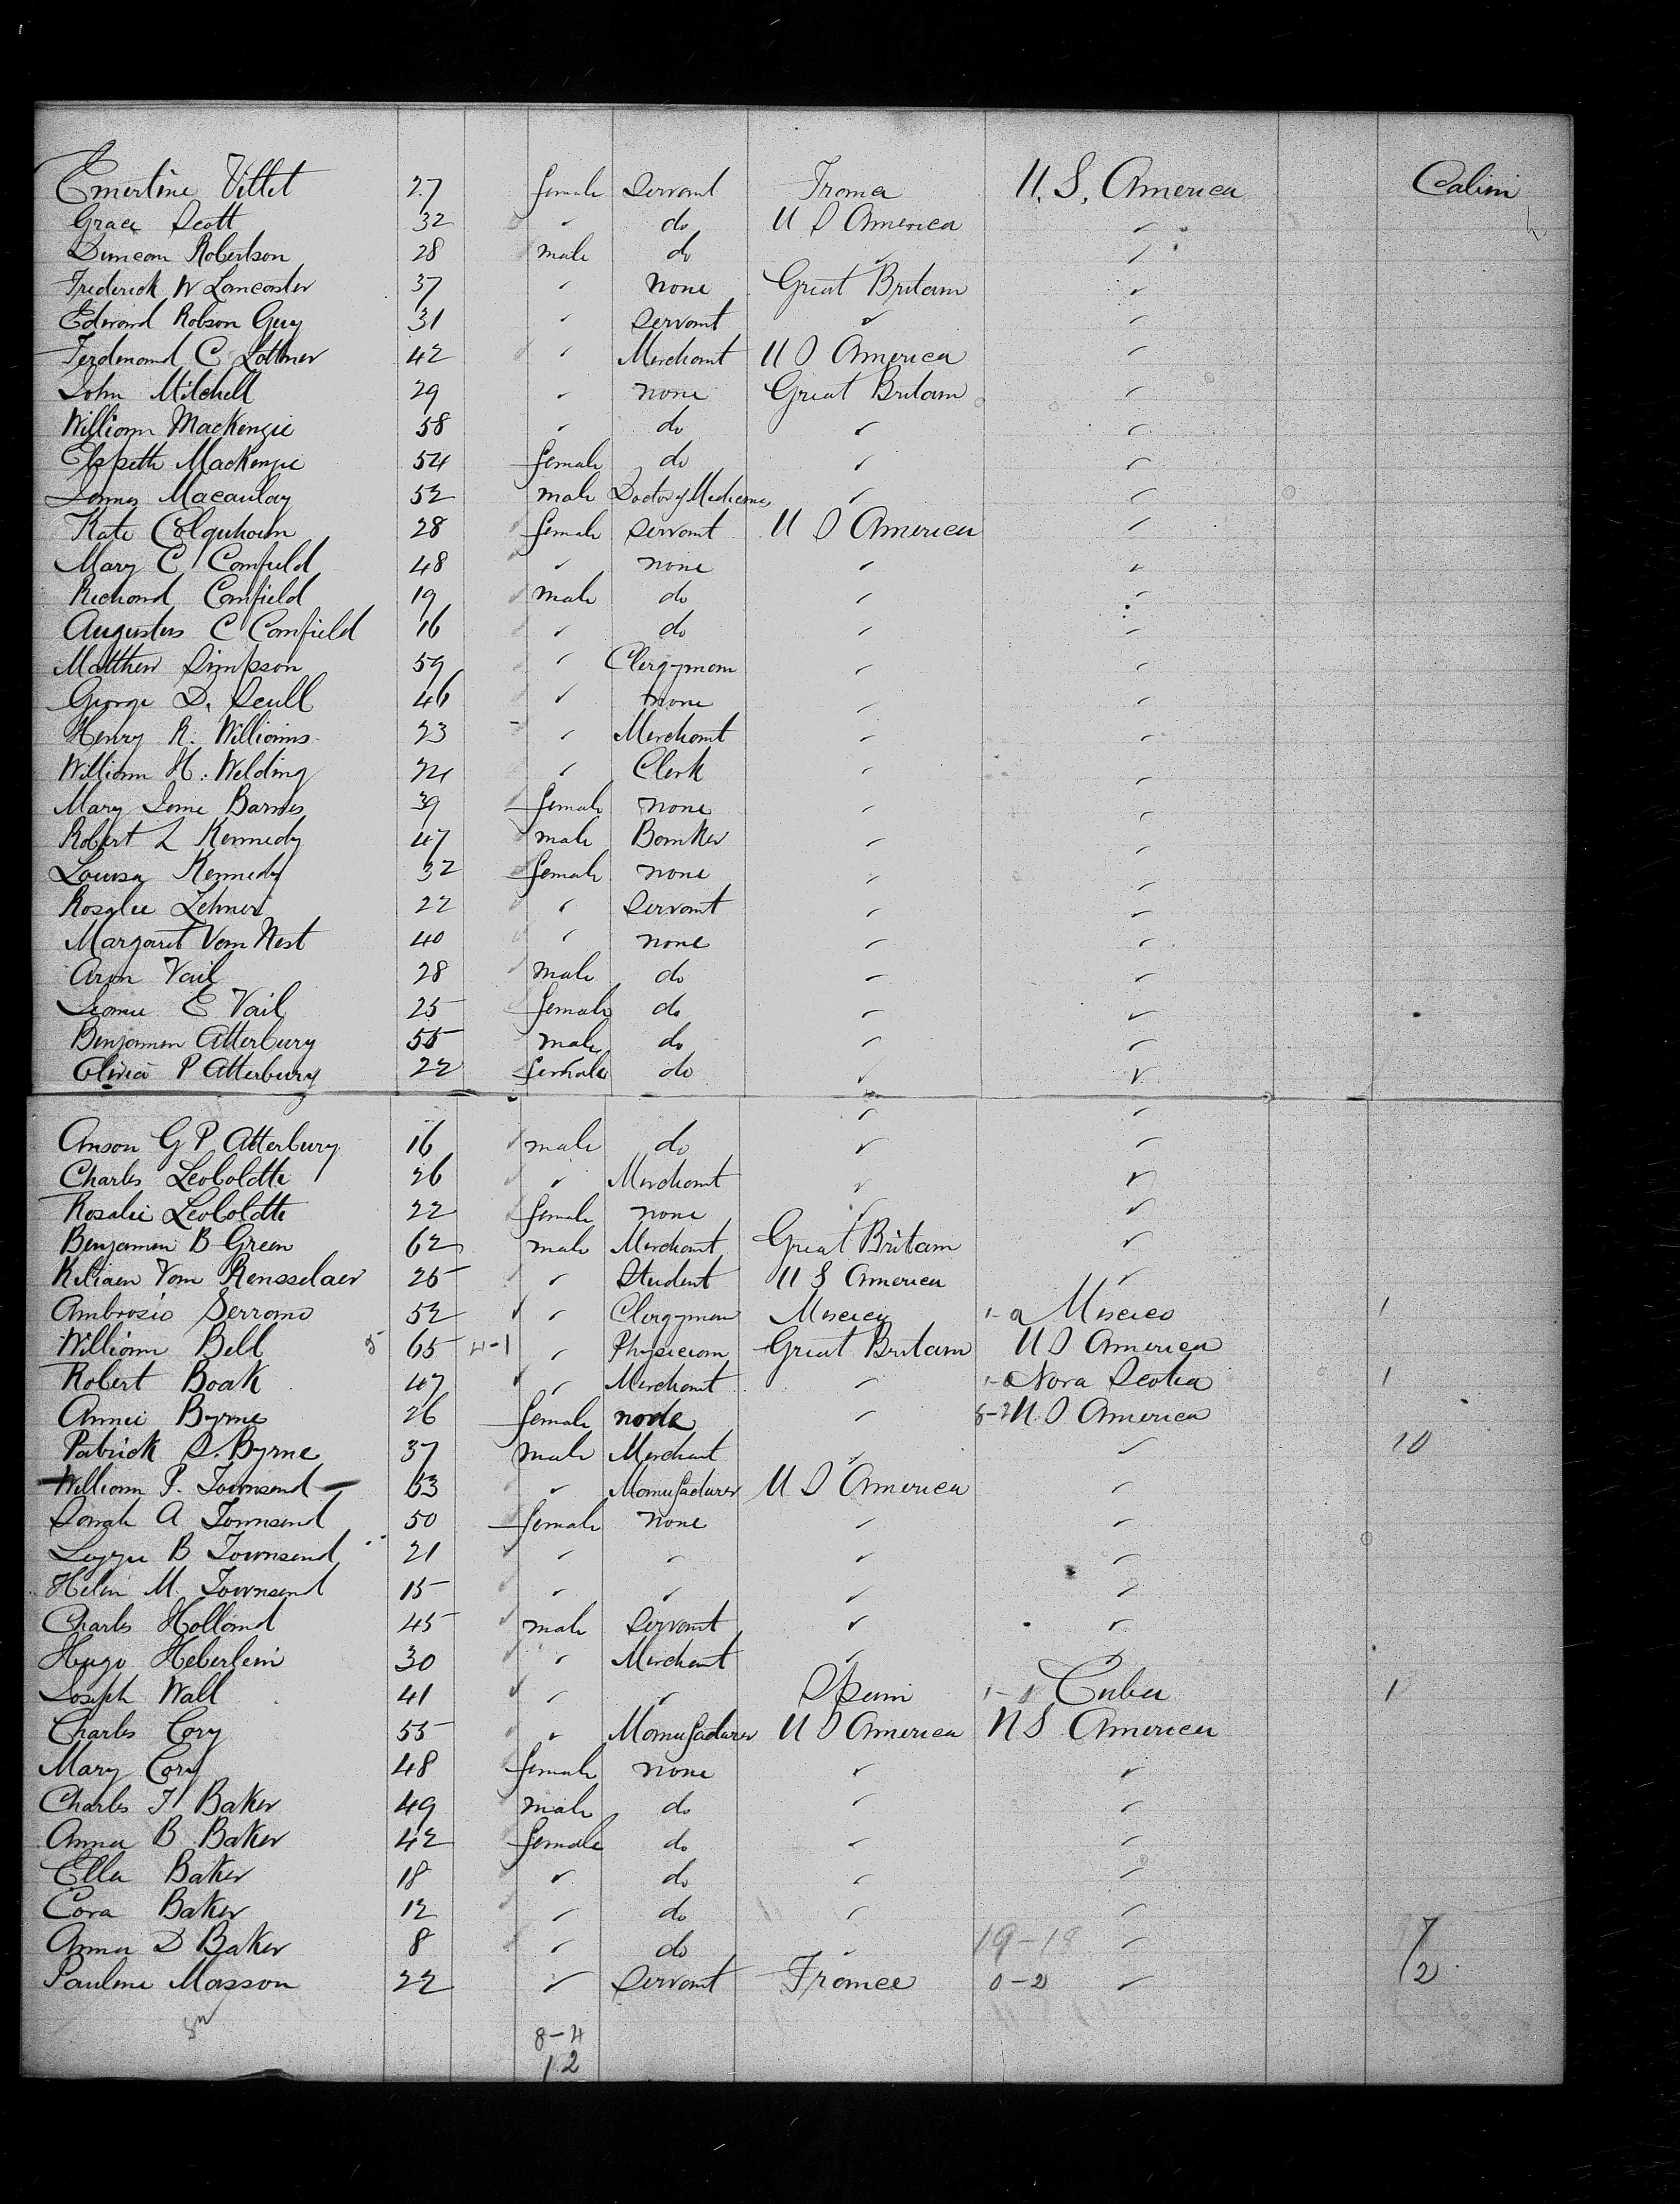 Emerline Villet 27 female Servant France U. S. America Cabin
Grace Scott 32 " do U S America "
Duncan Robertson 28 male do " "
Frederick W Lancaster 37 " none Great Britain "
Edward Robson Guy 31 " Servant " "
Ferdinand C Lottmer 42 " Merchant U S America "
John Mitchell 29 " none Great Britain "
William Mackenzie 58 " do " "
Elspeth Mackenzie 54 female do " "
James Macaulay 52 male Doctor of Medicine " "
Kate Colquhoun 28 female Servant U S America "
Mary C Canfield 48 " none " "
Richard Canfield 19 male do " "
Augustus C Canfield 16 " do " "
Matthew Simpson 59 " Clergyman " "
George D. Scull 46 " none " "
Henry R. Williams 23 " Merchant " "
William H. Welding 24 " Clerk " "
Mary Jane Barnes 39 female none " "
Robert L Kennedy 47 male Banker " "
Louisa Kennedy 32 female none " "
Rosalie Zehner 22 " Servant " "
Margaret Van Nest 40 " none " "
Aron Vail 28 male do " "
Jeanie E Vail 25 female do " "
Benjamin Atterbury 55 male do " "
Olivia P Atterbury 22 female do " "
Anson G P Atterbury 16 male do " "
Charles Leoboldtti 26 " Merchant " "
Rosalie Leoboldtti 22 female none " "
Benjamin B Green 62 male Merchant Great Britain "
Kiliaen Van Rensselaer 25 " Student U S America "
Ambrosio Serrano 52 " Clergyman Mexico Mexico 1
William Bell 65 4-1 " Physician Great Britain U S America
Robert Boak 47 " Merchant " Nova Scotia 1
Annie Byrne 26 female none " 8-2 U. S America
Patrick S. Byrne 37 male Merchant " " 10
William P. Townsend 63 " Manufacturer U S America "
Sarah A Townsend 50 female none " "
Lizzie B Townsend 21 " " " "
Helen M. Townsend 15 " " " "
Charles Holland 45 male Servant " "
Hugo Heberlein 30 " Merchant " "
Joseph Wall 41 " " Spain Cuba 1
Charles Cory 55 " Manufacturer U S America U S America
Mary Cory 48 female none " "
Charles T Baker 49 male do " "
Anna B Baker 42 female do " "
Ella Baker 18 " do " "
Cora Baker 12 " do " "
Anna D Baker 8 " do " 19-18 "
Pauline Masson 22 " Servant France 0-2 " 2
8-4
12